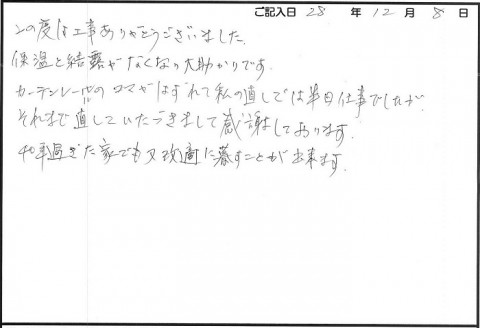 ご記入日 28 年 12 月 8 日
この度は工事ありがとうございました。
保温と結露がなくなり大助かりです。
カーテンレールのコマがはずれて私の直しでは半日仕事でしたが
それまで直していただきまして感謝しております。
40年過ぎた家でも又快適に暮すことが出来ます。